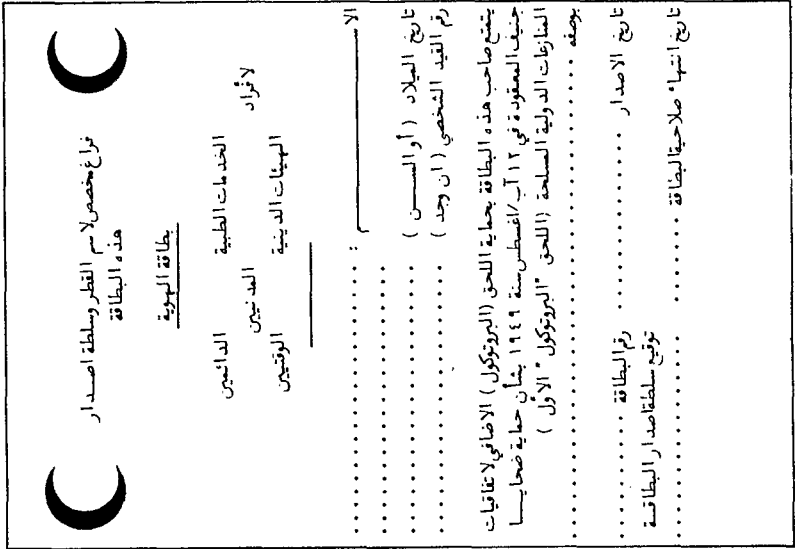 فراغ مخصص لاسم القطر وسلطة اصدار
هذه البطاقة
بطاقة الهوية
لافراد
الخدمات الطبية
الدائمين
المدنيين
الهيئات الدينية
الوقتيين
الاســـــــم : . . . . . . . . . . . . . . . . .
. . . . . . . . . . . . . . . . .
تاريخ الميلاد ( أو الســـن ) . . . . . . . . . . . . . . . . .
رقم القيد الشخصي ( ان وجد ) . . . . . . . . . . . . . . . . .
يتمتع صاحب هذه البطاقة بحماية اللحق (البروتوكول) الاضافي لاتفاقيات
جنيف المعقودة في ١٢ آب/اغسطس سنة ١٩٤٩ بشأن حماية ضحايـــا
المنازعات الدولية المسلحة (اللحق "البروتوكول" الأول )
بوصفه . . . . . . . . . . . . . . . . . . . . . . . . . . . . . .
تاريخ الاصدار . . . . . . . . . . . رقم البطاقة . . . . . . . . . . .
توقيع سلطة اصدار البطاقـــة
تاريخ انتهاء صلاحية البطاقة . . . . . . . . . . . . . . . . .